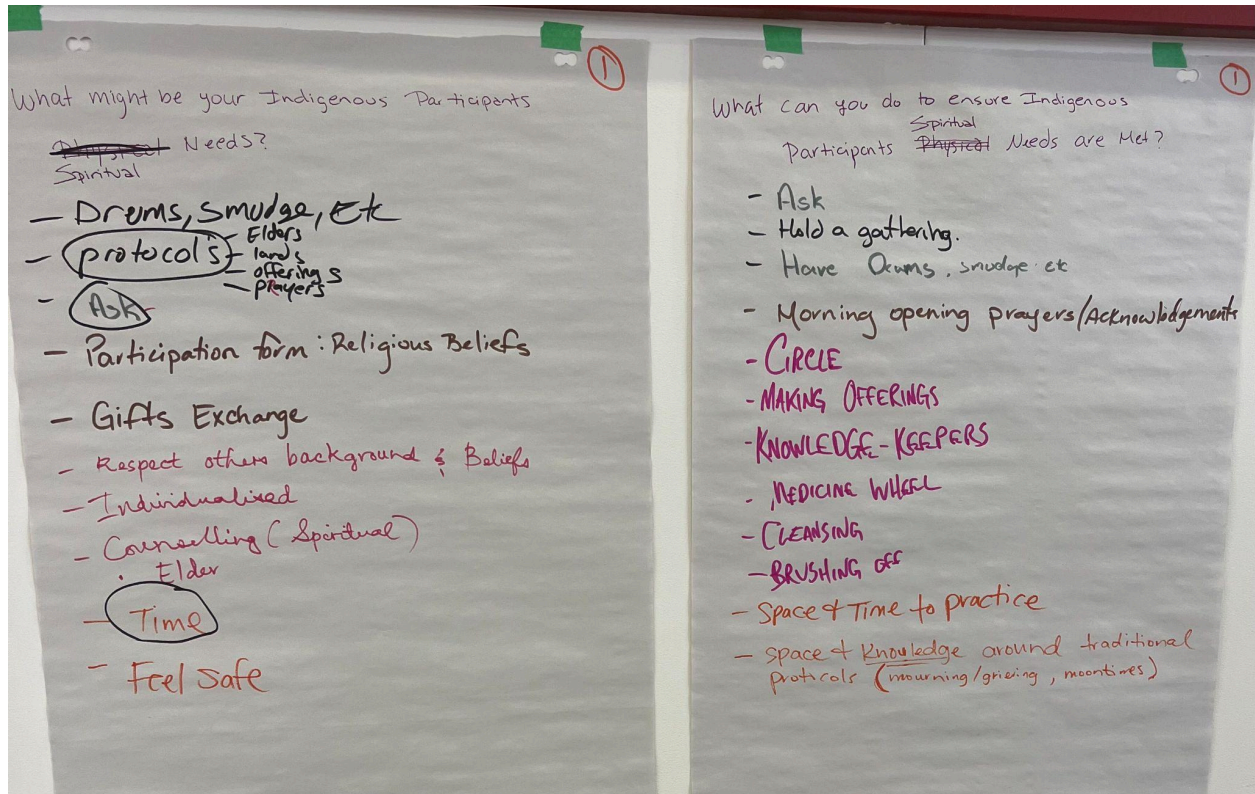 1
What might be your Indigenous Participants
Physical Needs?
Spiritual
- Drums, Smudge, Etc
- protocols - Elders
- lands
- offerings
- prayers
- Ask
- Participation form : Religious Beliefs
- Gifts Exchange
- Respect others background & Beliefs
- Individualized
- Counselling (Spiritual)
· Elder
- Time
- Feel Safe
1
What can you do to ensure Indigenous
Spiritual
Participants Physical Needs are Met?
- Ask
- Hold a gathering.
- Have Drums, smudge etc
- Morning opening prayers/Acknowledgements
- CIRCLE
- MAKING OFFERINGS
- KNOWLEDGE-KEEPERS
- MEDICINE WHEEL
- CLEANSING
- BRUSHING OFF
- Space & Time to practice
- Space & Knowledge around traditional
proticols (mourning/grieving, moontimes)